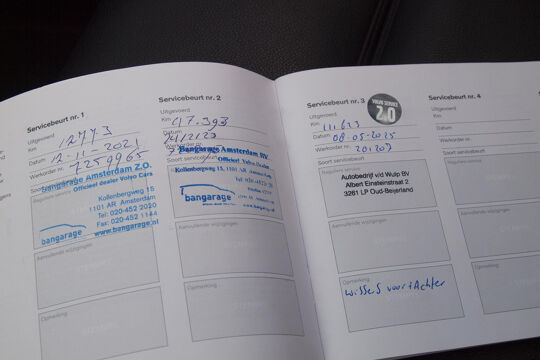 Servicebeurt nr. 1
Uitgevoerd
Km 12773
Datum 12-11-2021
Werkorder nr. 7259965
Soort servicebeurt
Bangarage Amsterdam Z.O.
Officieel dealer Volvo Cars
Kollenbergweg 15
1101 AR Amsterdam
Tel: 020-452 2020
Fax 020-452 1144
www.bangarage.nl
bangarage
Aanvullende wijzigingen
Opmerking
Servicebeurt nr. 2
Uitgevoerd
Km 47.393
Datum
Werkorder nr.
Soort
Bangarage Amsterdam BV.
Officieel Volvo Dealer
Kollenbergweg 15, 1101 AR
bangarage
Aanvullende wijzigingen
Opmerking
Servicebeurt nr. 3
VOLVO SERVICE
2.0
Uitgevoerd
Km 111.633
Datum 08-05-2025
Werkorder nr.
Soort servicebeurt
Reguliere service
Autobedrijf vld Wulp BV
Albert Einsteinstraat 2
3261 LP Oud-Beijerland
Aanvullende wijzigingen
Opmerking
wissers voor+Achter
Servicebeurt nr. 4
Uitgevoerd
Km
Datum
Werkorder nr.
Soort servicebeurt
Reguliere service
Aanvullende wijzigingen
Opmerking